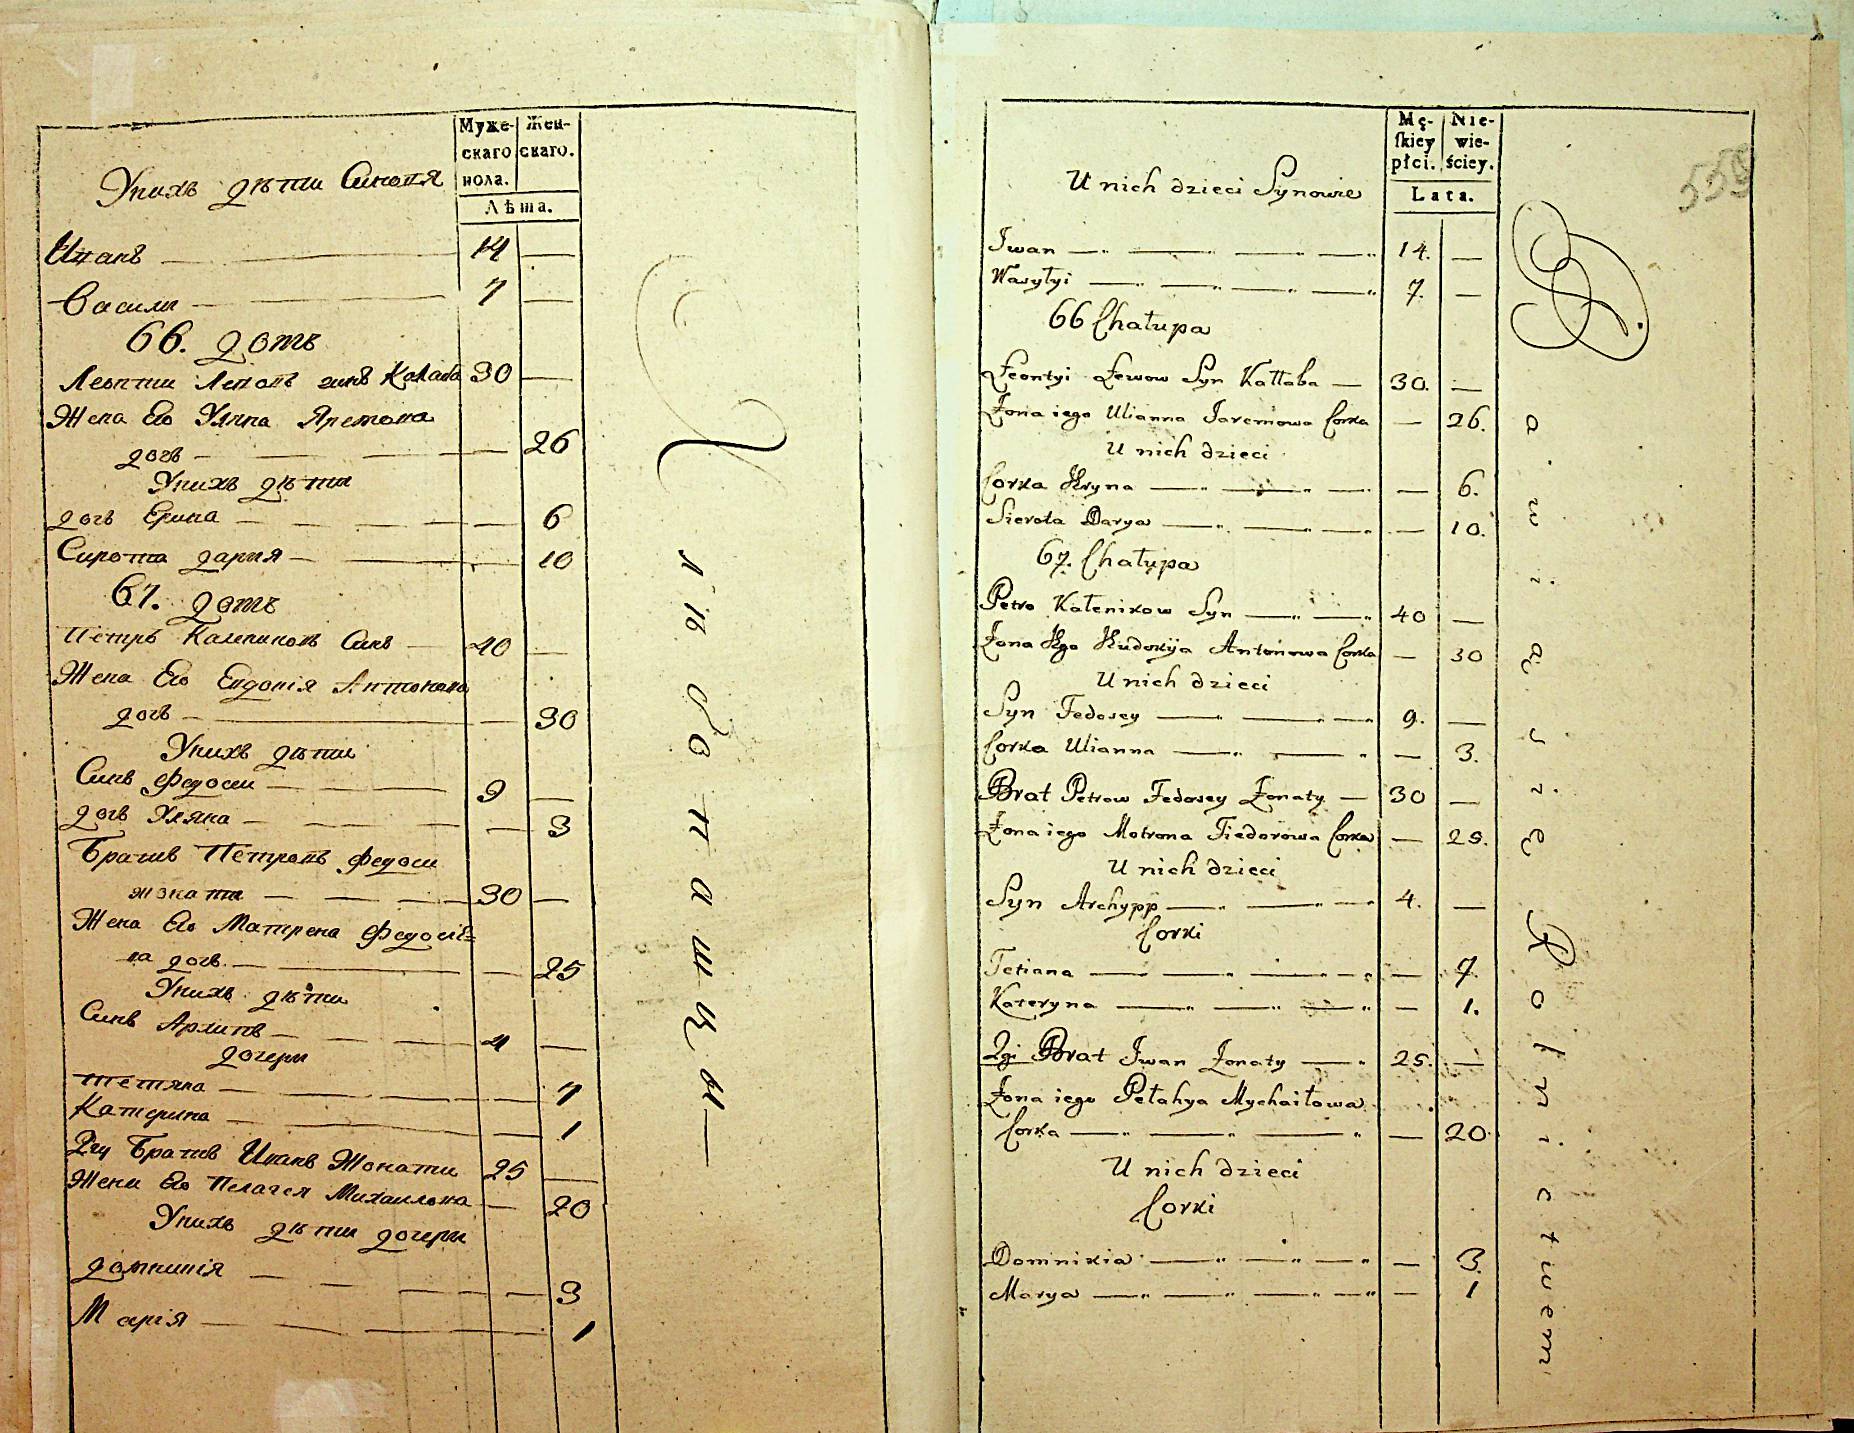 Муже-
скаго
пола.
Жен-
скаго.
Лѣта.
Унихъ дѣти Синовя
Иванъ — 14 —
Васили — 7 —
66. домъ
Леонти Левовъ синъ Калаба 30 —
Жена Его Уляна Яремова
дочъ — — 26
Унихъ дѣти
дочъ Ерина — — 6
Сирота дария — — 10
67. домъ
Петръ Калениковъ Синъ — 40 —
Жена Его Евдокія Антонова
дочъ — — 30
Унихъ дѣти
Синъ Федоси — 9 —
дочъ Уляна — — 3
Братъ Петровъ Федоси
жонати — 30 —
Жена Его Матрена Федосіе=
ва дочъ. — — 25
Унихъ дѣти
Синъ Архипъ — 4 —
дочери
Тетяна — — 7
Катерина — — 1
2ги Братъ Иванъ Жонати 25 —
Жена Его Пелагея Михаилова — 20
Унихъ дѣти дочери
домникія — — 3
Марія — — 1
Хлѣбопашци —
Mę-
ſkiey
płci.
Nie-
wie-
ściey.
Lata.
559
U nich dzieci Synowie
Iwan — 14. —
Wasylyi — 7. —
66 Chałupa
Leontyi Lewow Syn Kałłaba — 30. —
Żona iego Ulianna Jaremowa Corka — 26.
U nich dzieci
Corka Iryna — — 6.
Sierota Darya — — 10.
67. Chałupa
Petro Kałenikow Syn — 40 —
Żona Jego Eudokija Antonowa Corka — 30
U nich dzieci
Syn Fedosey — 9. —
Corka Ulianna — — 3.
Brat Petrow Fedosey Żonaty — 30 —
Żona iego Motrona Fiedorowa Corka — 25.
U nich dzieci
Syn Archypp — 4. —
Corki
Tetiana — — 7.
Kateryna — — 1.
2gi Brat Iwan Żonaty — 25. —
Żona iego Pełahya Mychaiłowa
Corka — — 20.
U nich dzieci
Corki
Domnikia — — 3.
Marya — — 1
Bawią się Rolnictwem